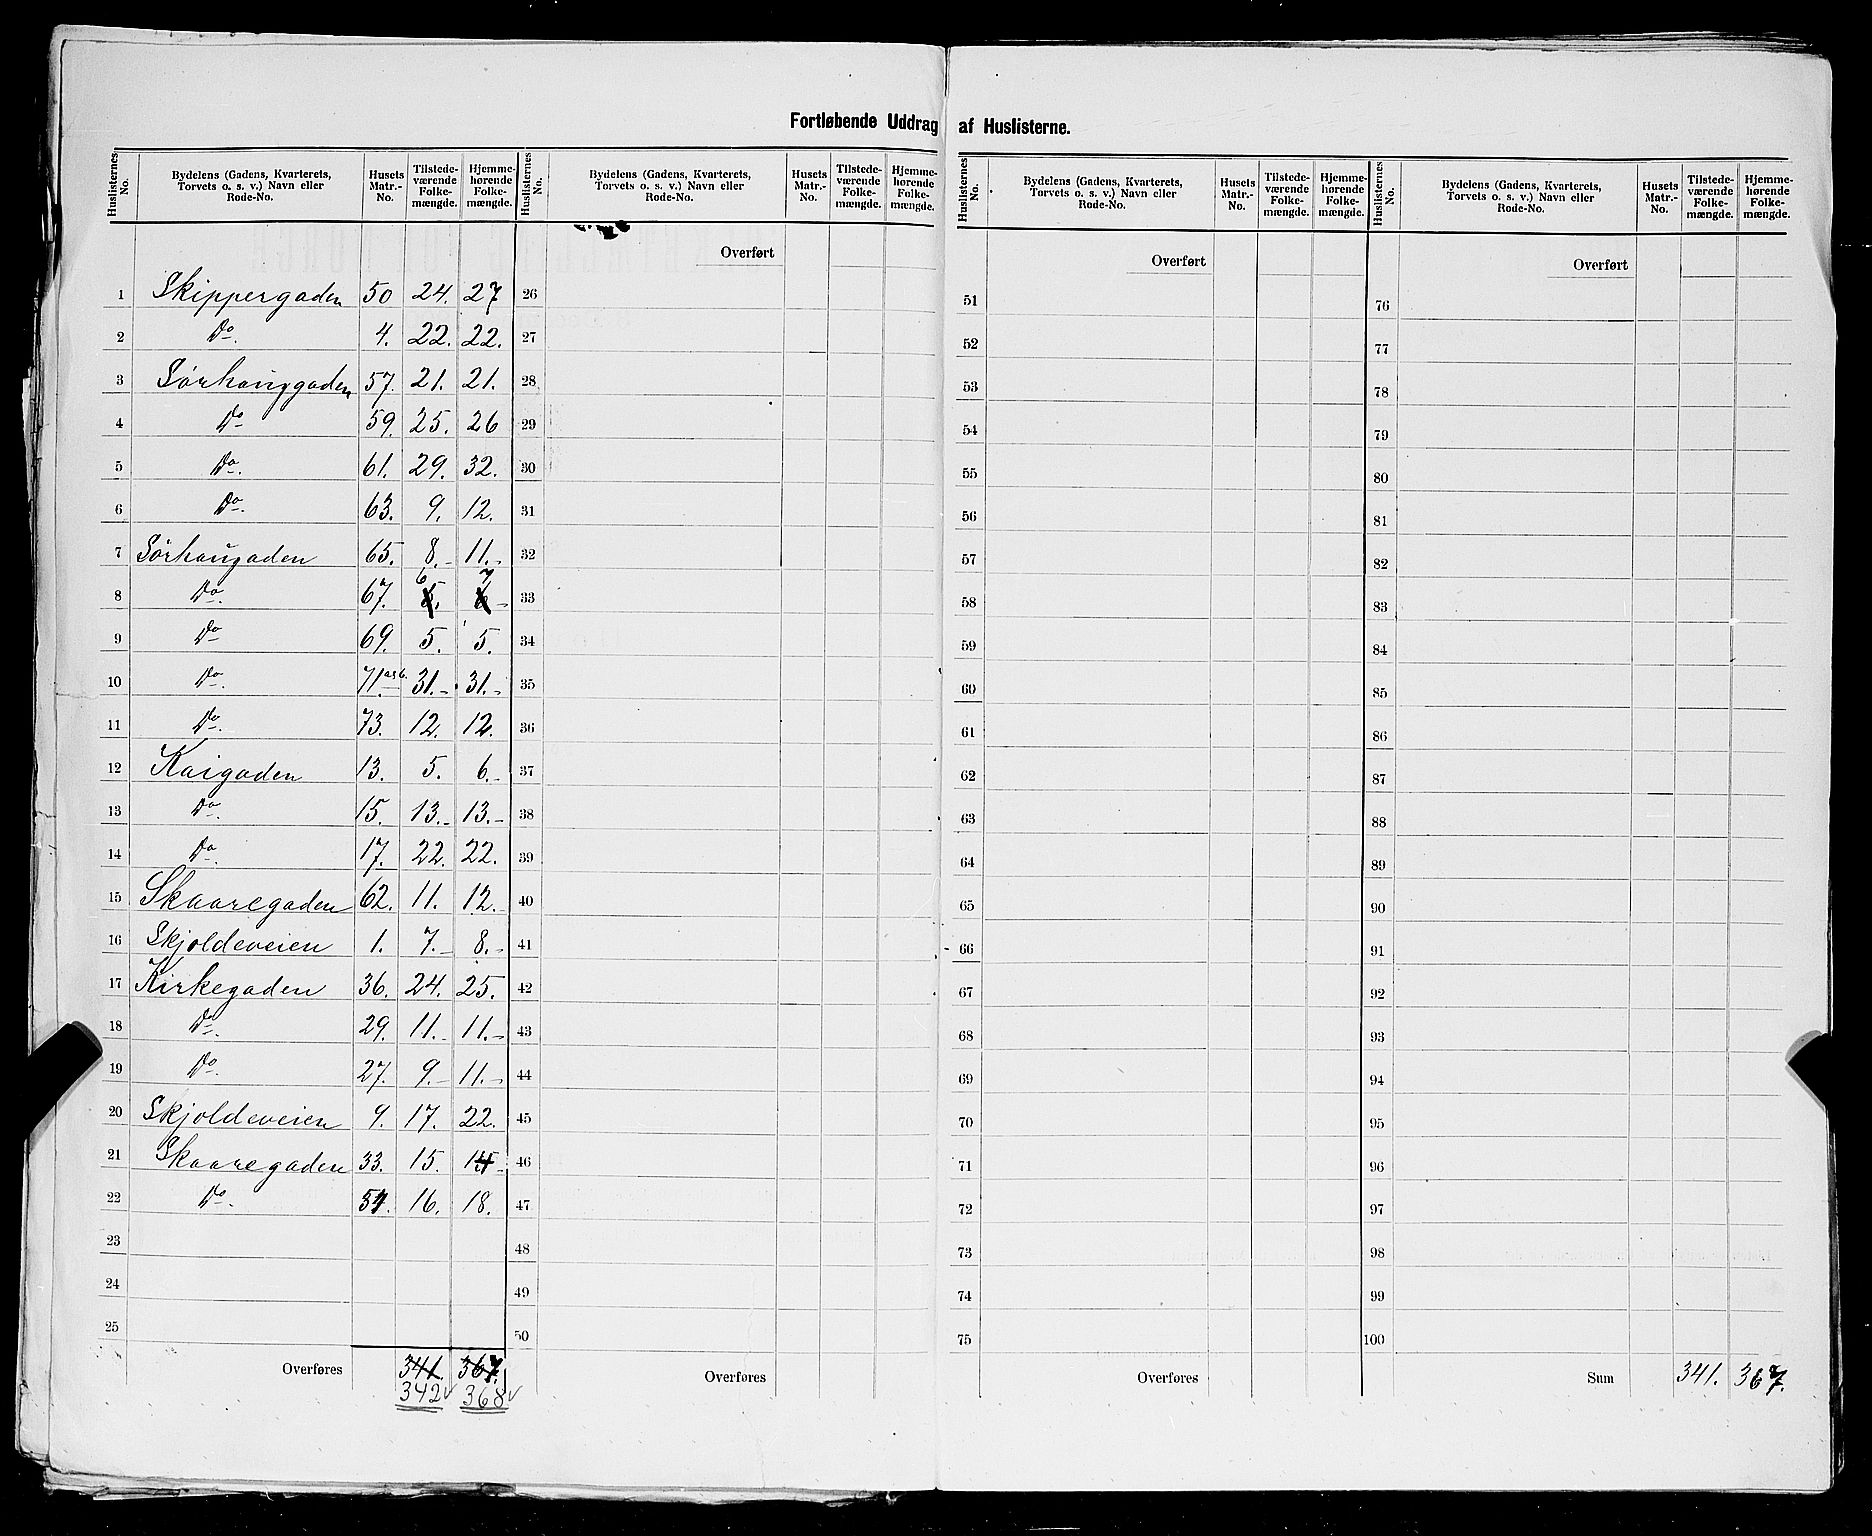 Fortløbende Uddrag af Huslisterne.
Huslisternes No. | Bydelens (Gadens, Kvarterets, Torvets o. s. v.) Navn eller Rode-No. | Husets Matr.-No. | Tilstedeværende Folkemængde. | Hjemmehørende Folkemængde.
1 Skippergaden 50 24. 27
2 Do. 4. 22. 22.
3 Sørhauggaden 57. 21. 21.
4 Do 59. 25. 26
5 Do. 61. 29. 32.
6 Do. 63. 9. 12.
7 Sørhaugaden 65. 8.- 11.-
8 Do. 67. 6 7
9 Do 69. 5. 5.
10 Do. 71. a&b. 31.- 31.-
11 Do. 73. 12. 12.
12 Kaigaden 13. 5. 6.-
13 Do. 15. 13.- 13.-
14 Do. 17. 22. 22.
15 Skaaregaden 62. 11. 12.
16 Skjoldeveien 1. 7.- 8.-
17 Kirkegaden 36. 24. 25.
18 Do. 29. 11.- 11.-
19 Do. 27. 9.- 11.-
20 Skjoldeveien 9. 17. 22.
21 Skaaregaden 33. 15.
22 Do. 16. 18.
23
24
25
Overføres 341. 367.
342 ✓ 368 ✓
Huslisternes No. | Bydelens (Gadens, Kvarterets, Torvets o. s. v.) Navn eller Rode-No. | Husets Matr.-No. | Tilstedeværende Folkemængde. | Hjemmehørende Folkemængde.
Overført
26
27
28
29
30
31
32
33
34
35
36
37
38
39
40
41
42
43
44
45
46
47
48
49
50
Overføres
Huslisternes No. | Bydelens (Gadens, Kvarterets, Torvets o. s. v.) Navn eller Rode-No. | Husets Matr.-No. | Tilstedeværende Folkemængde. | Hjemmehørende Folkemængde.
Overført
51
52
53
54
55
56
57
58
59
60
61
62
63
64
65
66
67
68
69
70
71
72
73
74
75
Overføres
Huslisternes No. | Bydelens (Gadens, Kvarterets, Torvets o. s. v.) Navn eller Rode-No. | Husets Matr.-No. | Tilstedeværende Folkemængde. | Hjemmehørende Folkemængde.
Overført
76
77
78
79
80
81
82
83
84
85
86
87
88
89
90
91
92
93
94
95
96
97
98
99
100
Sum 341. 367.